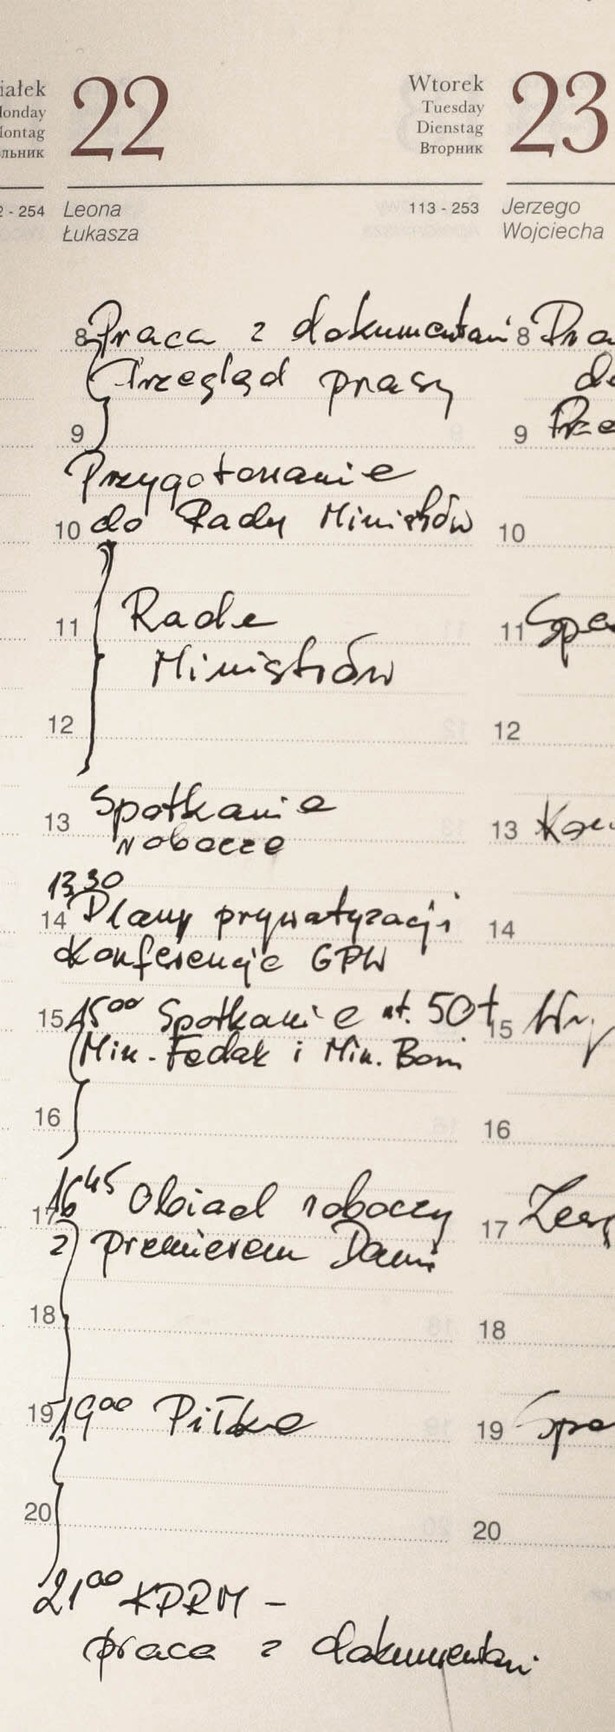 iałek
onday
ontag
льник
22
2 - 254
Leona
Łukasza
8 Praca z dokumentami
Przegląd prasy
9
Przygotowanie
10 do Rady Ministrów
11 Rada
Ministrów
12
13 Spotkanie
robocze
13 30
14 Plany prywatyzacji
Konferencje GPW
15 15 00 Spotkanie nt. 50+
Min. Fedak i Min. Boni
16
16 45 Obiad roboczy
17
z premierem Danii
18
19 19 00 Piłka
20
21 00 KPRM -
praca z dokumentami
Wtorek
Tuesday
Dienstag
Вторник
23
113 - 253
Jerzego
Wojciecha
8 Pra
do
9 Prze
10
11 Spo
12
13
14
15
16
17
18
19 Spo
20